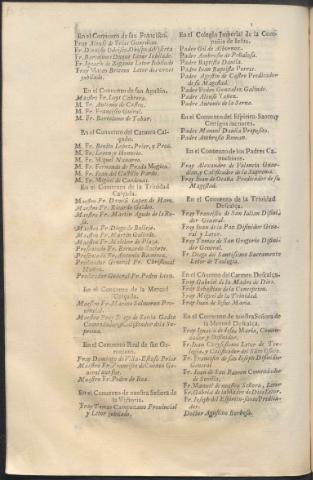 En el Convento de san Francisco.
Fray Alonso de Frias Guardian.
Fr. Bartolome Duque Letor Jubilado
Fr. Ignacio de Zegama Letor Jubilado
Fray Mateo Briceno Letor de artes
jubilado.
En el Convento de san Agustin.
Maestro Fr. Luys Cabrera.
M. Fr. Antonio de Castro.
M. Fr. Francisco
M. Fr. Bartolome de Tobar.
En el Convento del Carmen Calçado.
M. Fr. Benito Lopez, Prior, y Prov.
M. Fr. Lorenço Homero.
M. Fr. Miguel Navarro.
M. Fr. Fernando de Prado Mugica.
M. Fr. Juan del Castillo Pardo.
M. Fr. Miguel de Cardenas.
En el Convento de la Trinidad
Calçada.
Maestro Fr. Lopez de Haro.
Maestro Fr. Ricardo Galdes.
Maestro Fr. Martin Agudo de la Rosa.
Maestro Fr. Diego de
Maestro Fr. Martin Galindo.
Maestro Fr. Melchor de Plaça.
Presentado Fr. Bernardo
Presentado Fr. Antonio Ramirez.
Predicador General Fr. Christoual
Predicador General Fr. Pedro
En el Convento de la Merced
Calçada.
Maestro Fr. Marcos Salmeron Provincial.
Maestro Fray Diego de Sarria
Comendador y Calificador de la Suprema.
En el Convento Real de san Geronimo.
Fray Domingo de Villa-Estofa Prior
Maestro Fr. Francisco de Cuenca General que fue.
Maestro Fr. Pedro de Roa.
En el Convento de nuestra Señora de
la Victoria.
Fray Tomas Campuzano Provincial
y Letor jubilado.
En el Colegio Imperial de la Compañia de Iesus.
Padre Gil de Albornoz.
Padre Ambrosio de Peñalosa.
Padre Bautista Davila.
Padre Juan Bautista Poza.
Padre Agustin de Castro Predicador
de su Magestad.
Padre Pedro Gonzalez Galindo.
Padre Alonso Yañez.
Padre Antonio de la Serna.
En el Convento del Espiritu Santo, y
Clerigos menores.
Padre Manuel Davila Preposito.
Padre Ambrosio Roman.
En el Convento de los Padres Capuchinos.
Fray Alexandro de Valencia Guardian, y Calificador de la Suprema.
Fray Juan de Ocaña Predicador de su
Magestad.
En el Convento de la Trinidad
Descalça.
Fray Francisco de San Iulian Difinidor General.
Fray Juan de la Paz Difinidor General y Letor.
Fray Tomas de San Gregorio Difinidor
General.
Fr. Diego del Santissimo Sacramento
Letor de Teologia.
En el Convento del Carmen Descalço.
Fray Gabriel de la Madre de Dios.
Fray Sebastian de la Concepcion.
Fray Miguel de la Trinidad.
Fray Juan de Iesus Maria.
En el Convento de nuestra Señora de
la Merced Descalça.
Fray Ignacio de Iesus Maria, Comendador y Difinidor.
Fr. Juan Chrisostomo Letor de Teologia, y Calificador del S. Oficio.
Fr. Francisco de san Ioseph Difinidor
General
Fr. Juan de San Ramon Comendador
de Sevilla.
Fr. Manuel de nuestra Señora, Letor
Fr. Gabriel de la Madre de Dios Letor.
Fr. Ioseph del Espiritu-santo Predicador.
Doctor Agustino Barbosa.